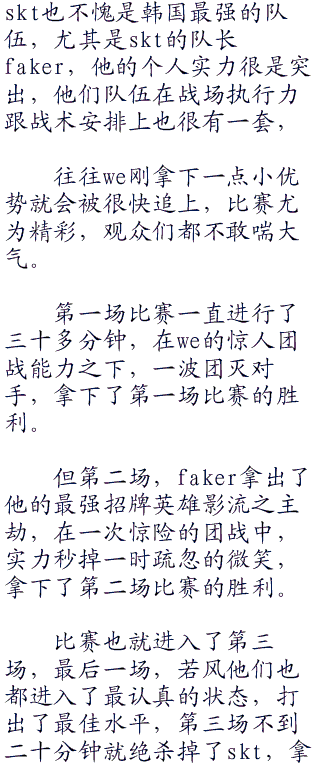 skt也不愧是韩国最强的队
伍，尤其是skt的队长
faker，他的个人实力很是突
出，他们队伍在战场执行力
跟战术安排上也很有一套，
往往we刚拿下一点小优
势就会被很快追上，比赛尤
为精彩，观众们都不敢喘大
气。
第一场比赛一直进行了
三十多分钟，在we的惊人团
战能力之下，一波团灭对
手，拿下了第一场比赛的胜
利。
但第二场，faker拿出了
他的最强招牌英雄影流之主
劫，在一次惊险的团战中，
实力秒掉一时疏忽的微笑，
拿下了第二场比赛的胜利。
比赛也就进入了第三
场，最后一场，若风他们也
都进入了最认真的状态，打
出了最佳水平，第三场不到
二十分钟就绝杀掉了skt，拿